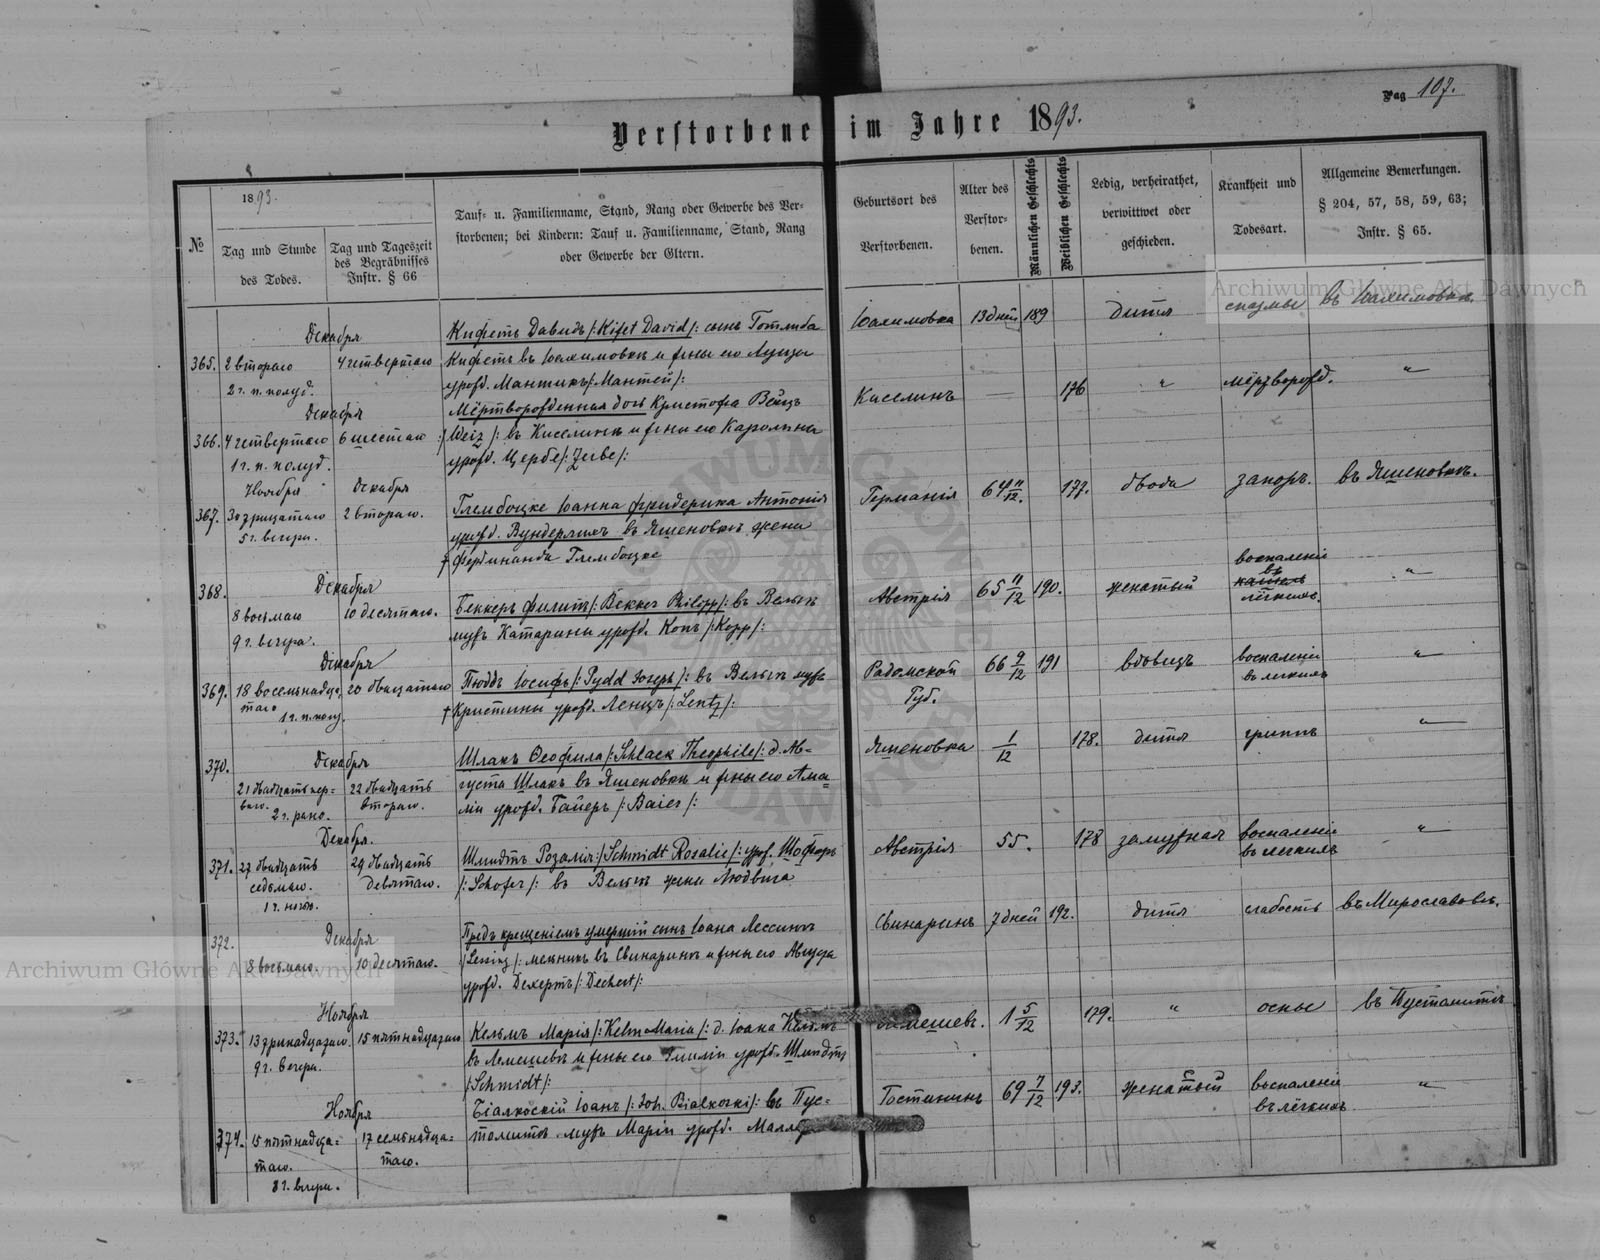 Pag 107.
Verstorbene im Jahre 1893.
№
1893.
Tag und Stunde
des Todes.
Tag und Tageszeit
des Begräbnisses
Instr. § 66
Tauf- u. Familienname, Stand, Rang oder Gewerbe des Ver-
storbenen; bei Kindern: Tauf u. Familienname, Stand, Rang
oder Gewerbe der Eltern.
Geburtsort des
Verstorbenen.
Alter des
Verstor-
benen.
Männlichen Geschlechts
Weiblichen Geschlechts
Ledig, verheirathet,
verwittwet oder
geschieden.
Krankheit und
Todesart.
Allgemeine Bemerkungen.
§ 204, 57, 58, 59, 63;
Instr. § 65.
Archiwum Główne Akt Dawnych
Декабря
365. 2 втораго
2 ч. п. полуд.
4 четвертаго
Кифетъ Давидъ /: Kifet David /: сынъ Готлиба
Кифетъ въ Іоахимовкѣ и жены его Луизы
урожд. Мантикъ /: Мантей /:
Іоахимовка 13 дней 189 дитя спазмы въ Іоахимовкѣ
Декабря
366. 4 четвертаго
1 ч. п. полуд.
6 шестаго
Мёртворожденная дочь Кристофа Вейцъ
/: Weiz /: въ Киселинѣ и жены его Каролины
урожд. Цербе /: Zerbe /:
Киселинъ — 176 " мёртворожд. "
Ноября Декабря
367. 30 тридцатаго
5 ч. вечера.
2 втораго.
Глембоцке Іоанна Фридерика Антонія
урожд. Вундерлихъ въ Яшеновкѣ жена
† Фердинанда Глембоцке
Германія 64 11/12. 177. вдова запоръ. въ Яшеновкѣ.
368. Декабря
8 восьмаго
9 ч. вечера.
10 десятаго.
Беккеръ Филипъ /: Bekker Philipp /: въ Вельтѣ
мужъ Катарины урожд. Копъ /: Kopp /:
Австрія 65 11/12 190. женатый воспаленіе
въ
лёгкихъ. "
Декабря
369. 18 восемьнадца-
таго
1 ч. п. полуд.
20 двадцатаго
Пюддъ Іосифъ /: Pydd Joseph /: въ Вельтѣ мужъ
† Кристины урожд. Ленцъ /: Lentz /:
Радомской
Губ.
66 9/12 191 вдовецъ воспаленіе
въ легкихъ "
370. Декабря
21 двадцать пер-
ваго.
2 ч. рано.
22 двадцать
втораго.
Шлакъ Теофила /: Schlack Theophile /: д. Ав-
густа Шлакъ въ Яшеновкѣ и жены его Ама-
ліи урожд. Байеръ /: Baier /:
Яшеновка 1/12 178. дитя гриппъ "
Декабря.
371. 27 двадцать
седьмаго.
1 ч. ночью.
29 двадцать
девятаго.
Шмидтъ Розалія /: Schmidt Rosalie /: урож. Шоферъ
/: Schofer /: въ Вельтѣ жена Людвига
Австрія 55. 178 замужная воспаленіе
въ легкихъ "
372. Декабря
8 восьмаго. 10 десятаго.
Предъ крещеніемъ умершій сынъ Іоана Лессингъ
/: Lessing /: мельникъ въ Свинаринѣ и жены его Августа
урожд. Дехертъ /: Dechert /:
Свинаринъ 7 дней 192. дитя слабость въ Мирославовкѣ.
Archiwum Główne Akt Dawnych
Ноября
373. 13 тринадцатаго.
9 ч. вечера.
15 пятнадцатаго
Кельмъ Марія /: Kelm Maria /: д. Іоана Кельмъ
въ Лемешевѣ и жены его Эмиліи урожд. Шмидтъ
/: Schmidt /:
1 5/12 179. " оспы въ Пустомытѣ
Ноября
374. 15 пятнадца-
таго.
8 ч. вечера.
17 семьнадца-
таго.
Бялкоскій Іоанъ /: Joh. Bialkoski /: въ Пус-
томытѣ мужъ Маріи урожд.
Гостининъ 69 7/12 193. женатый воспаленіе
въ лёгкихъ "